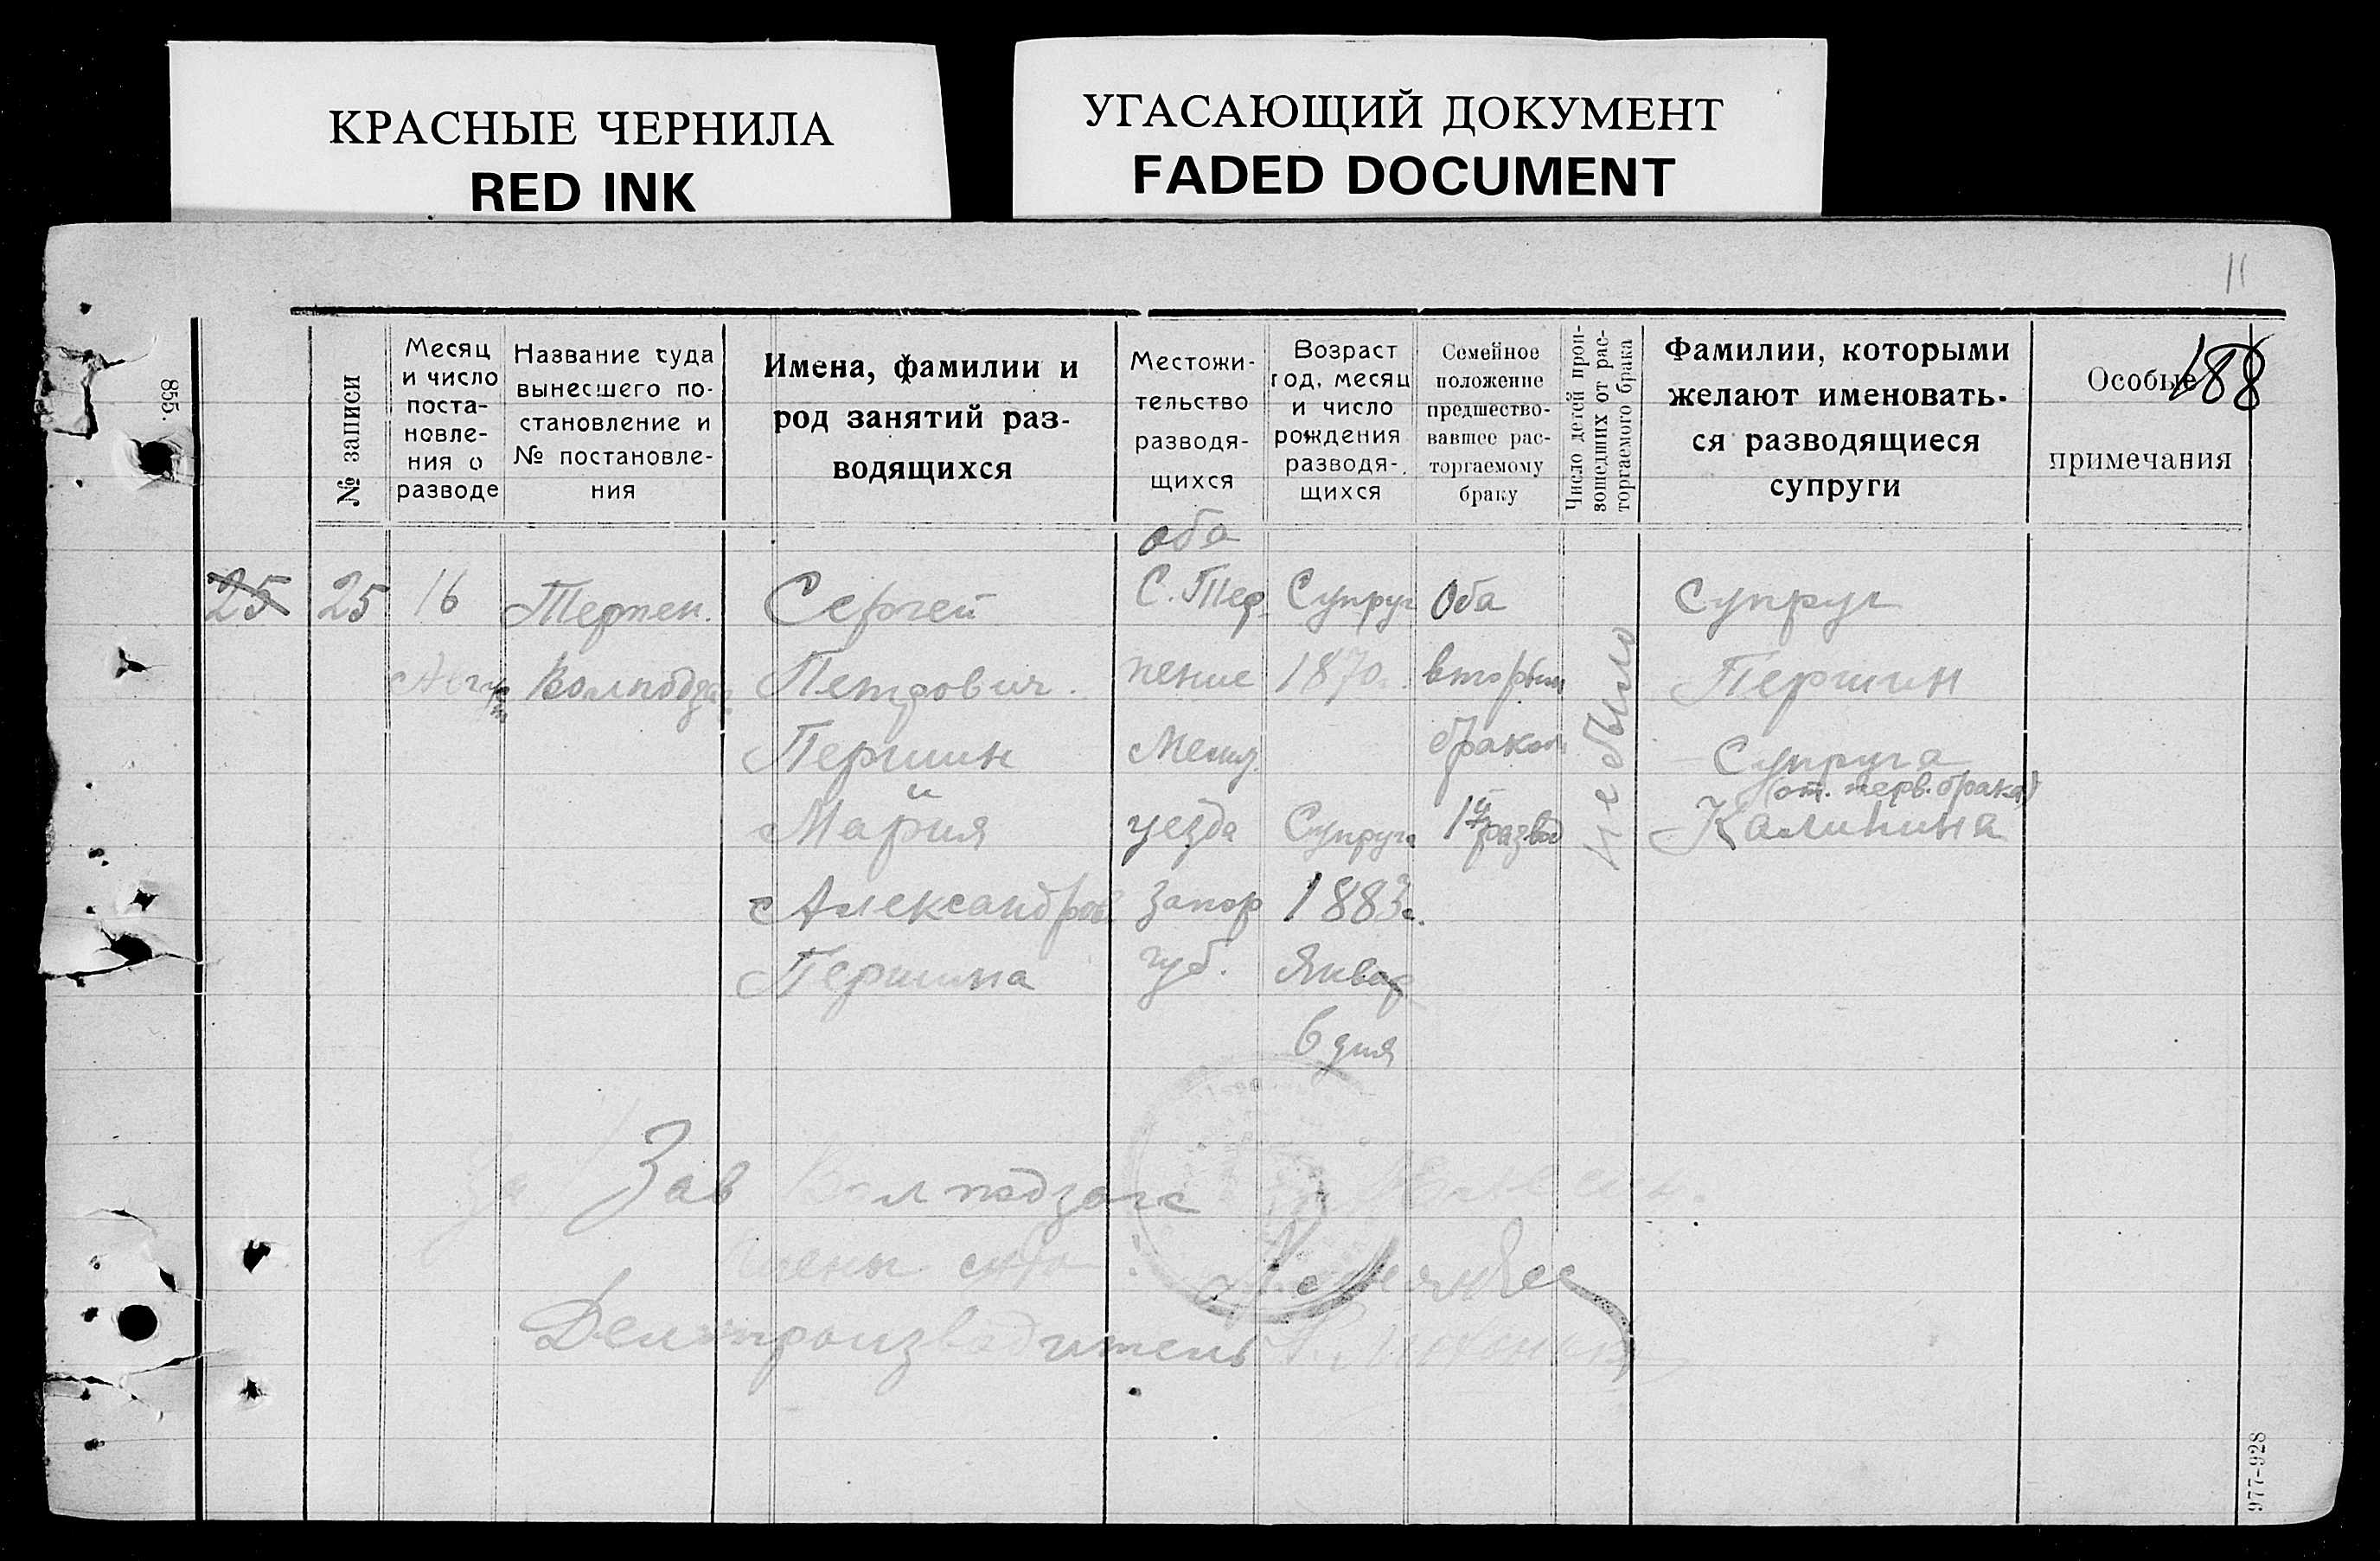 КРАСНЫЕ ЧЕРНИЛА
RED INK
УГАСАЮЩИЙ ДОКУМЕНТ
FADED DOCUMENT
11
188
855.
№ записи
Месяц
и число
поста-
новле-
ния о
разводе
Название суда
вынесшего по-
становление и
№ постановле-
ния
Имена, фамилии и
род занятий раз-
водящихся
Местожи-
тельство
разводя-
щихся
Возраст
год, месяц
и число
рождения
разводя-
щихся
Семейное
положение
предшество-
вавшее рас-
торгаемому
браку
Число детей прои-
зошедших от рас-
торгаемого брака
Фамилии, которыми
желают именовать-
ся разводящиеся
супруги
Особые
примечания
25
25
16
Август
Терпен.
Волподзаг.
Сергей
Петрович.
Першин
и
Мария
Александров.
Першина
оба
С. Тер
пение
Мелит.
уезда
Запор
губ.
Супруг
1870г.
Супруга
1883г.
Январ
6 дня
Оба
вторым
браком
1й развод
не было
Супруг
Першин
Супруга
(от. перв. брака)
Калинина
Зав Волподзагс
Члены
Делопроизводитель
977-928